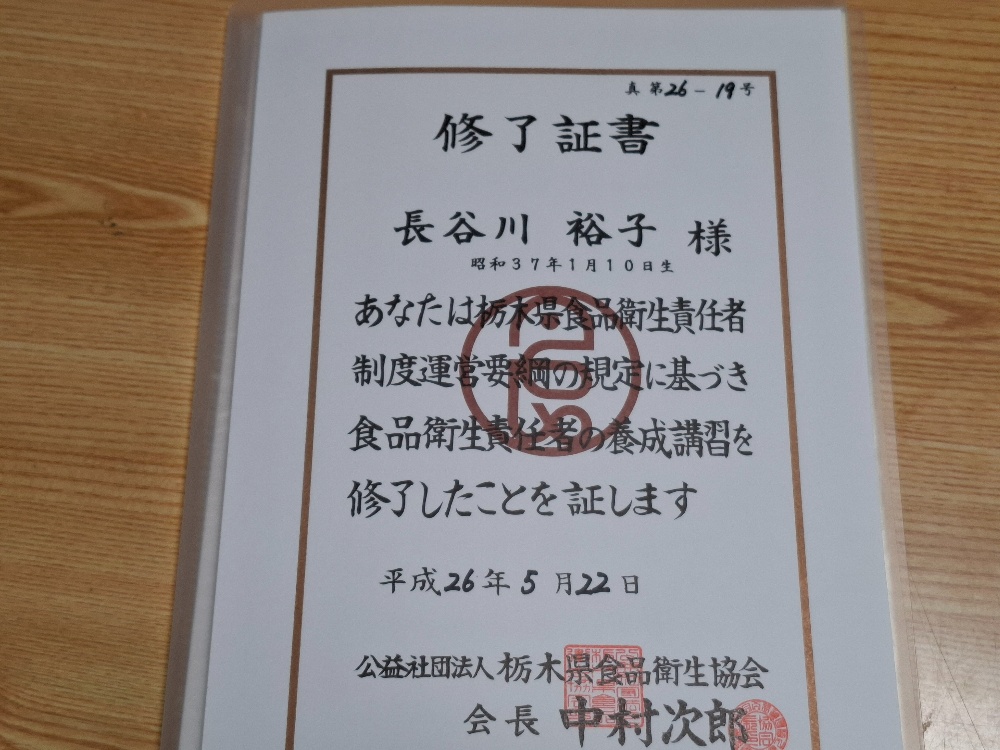 真 第26-19号
修了証書
長谷川 裕子 様
昭和37年1月10日生
あなたは栃木県食品衛生責任者
制度運営要綱の規定に基づき
食品衛生責任者の養成講習を
修了したことを証します
平成26年5月22日
公益社団法人 栃木県食品衛生協会
会長 中村次郎